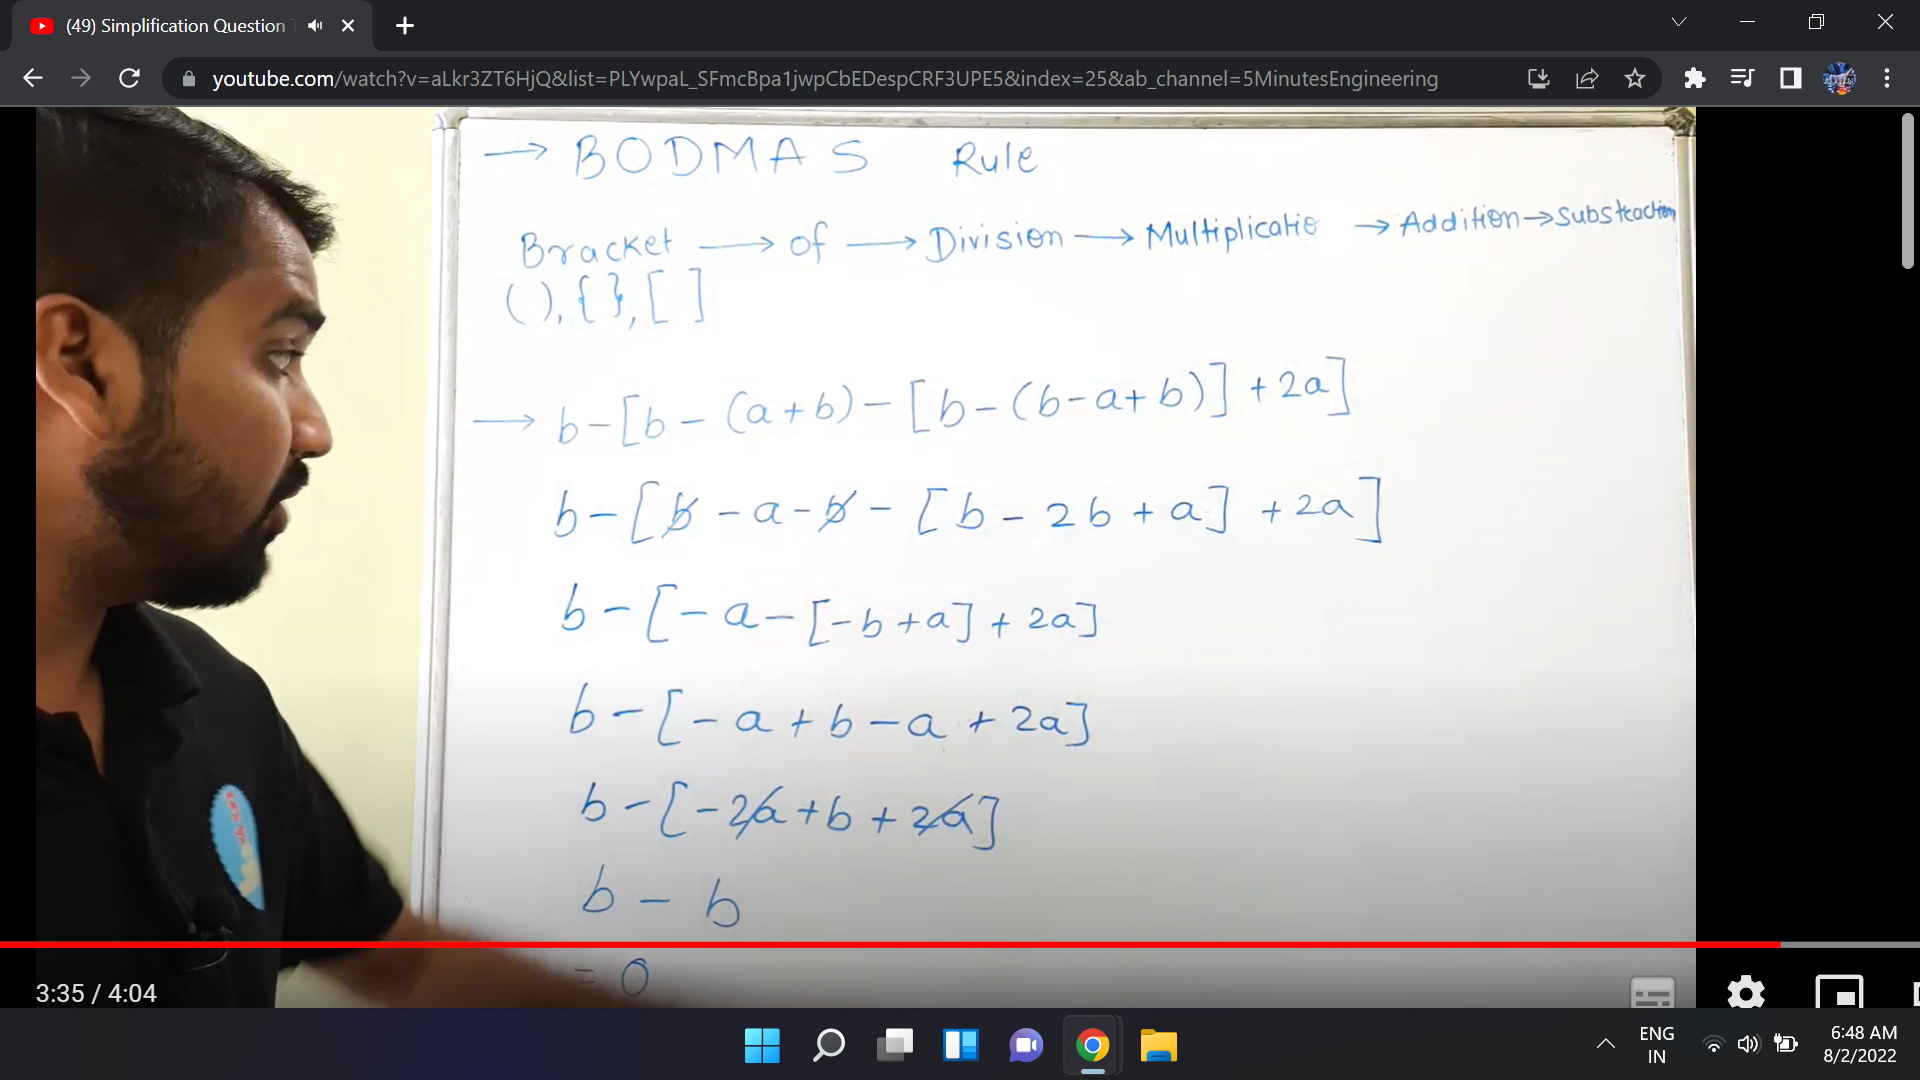 (49) Simplification Question
youtube.com/watch?v=aLkr3ZT6HjQ&list=PLYwpaL_SFmcBpa1jwpCbEDespCRF3UPE5&index=25&ab_channel=5MinutesEngineering
→ BODMAS Rule
Bracket → of → Division → Multiplicatio → Addition → Substraction
( ), { }, [ ]
→ b-[b-(a+b)-[b-(b-a+b)]+2a]
b-[b-a-b-[b-2b+a]+2a]
b-[-a-[-b+a]+2a]
b-[-a+b-a+2a]
b-[-2a+b+2a]
b-b
= 0
3:35 / 4:04
ENG
IN
6:48 AM
8/2/2022